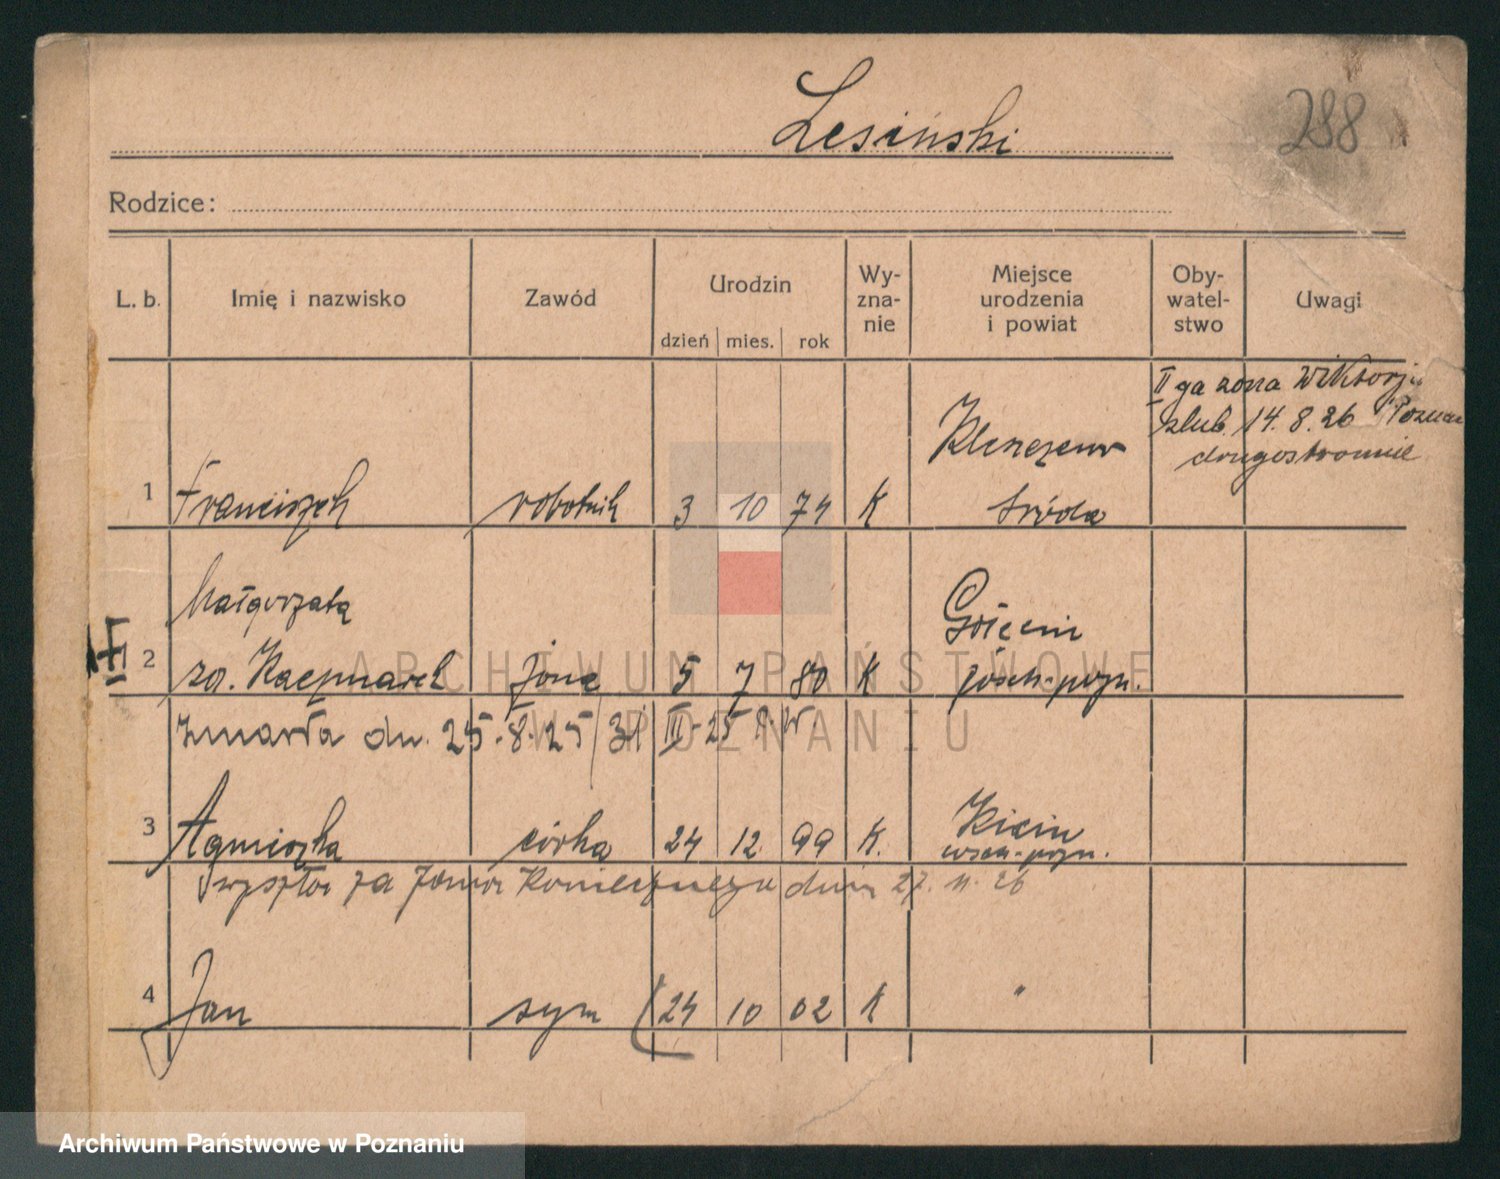 Lesiński
288
Rodzice:
L. b. Imię i nazwisko Zawód Urodzin Wy-zna-nie Miejsce urodzenia i powiat Oby-watel-stwo Uwagi
dzień mies. rok
II ga żona Wiktorja
ślub. 14. 8. 26 Poznań
drugostronnie
Kleszczewo
1 Franciszek robotnik 3 10 74 K Środa
Małgorzata
2 zd. Kaczmarek żona 5 7 80 K
Zmarła dn. 25. 8. 25 / 31 III - 25
Kicin
3 Agnieszka córka 24 12. 99 K.
wyszła za Jana Koniecznego dnia 27. 11. 26
4 Jan syn 24 10 02 K "
ARCHIWUM PAŃSTWOWE
W POZNANIU
Archiwum Państwowe w Poznaniu